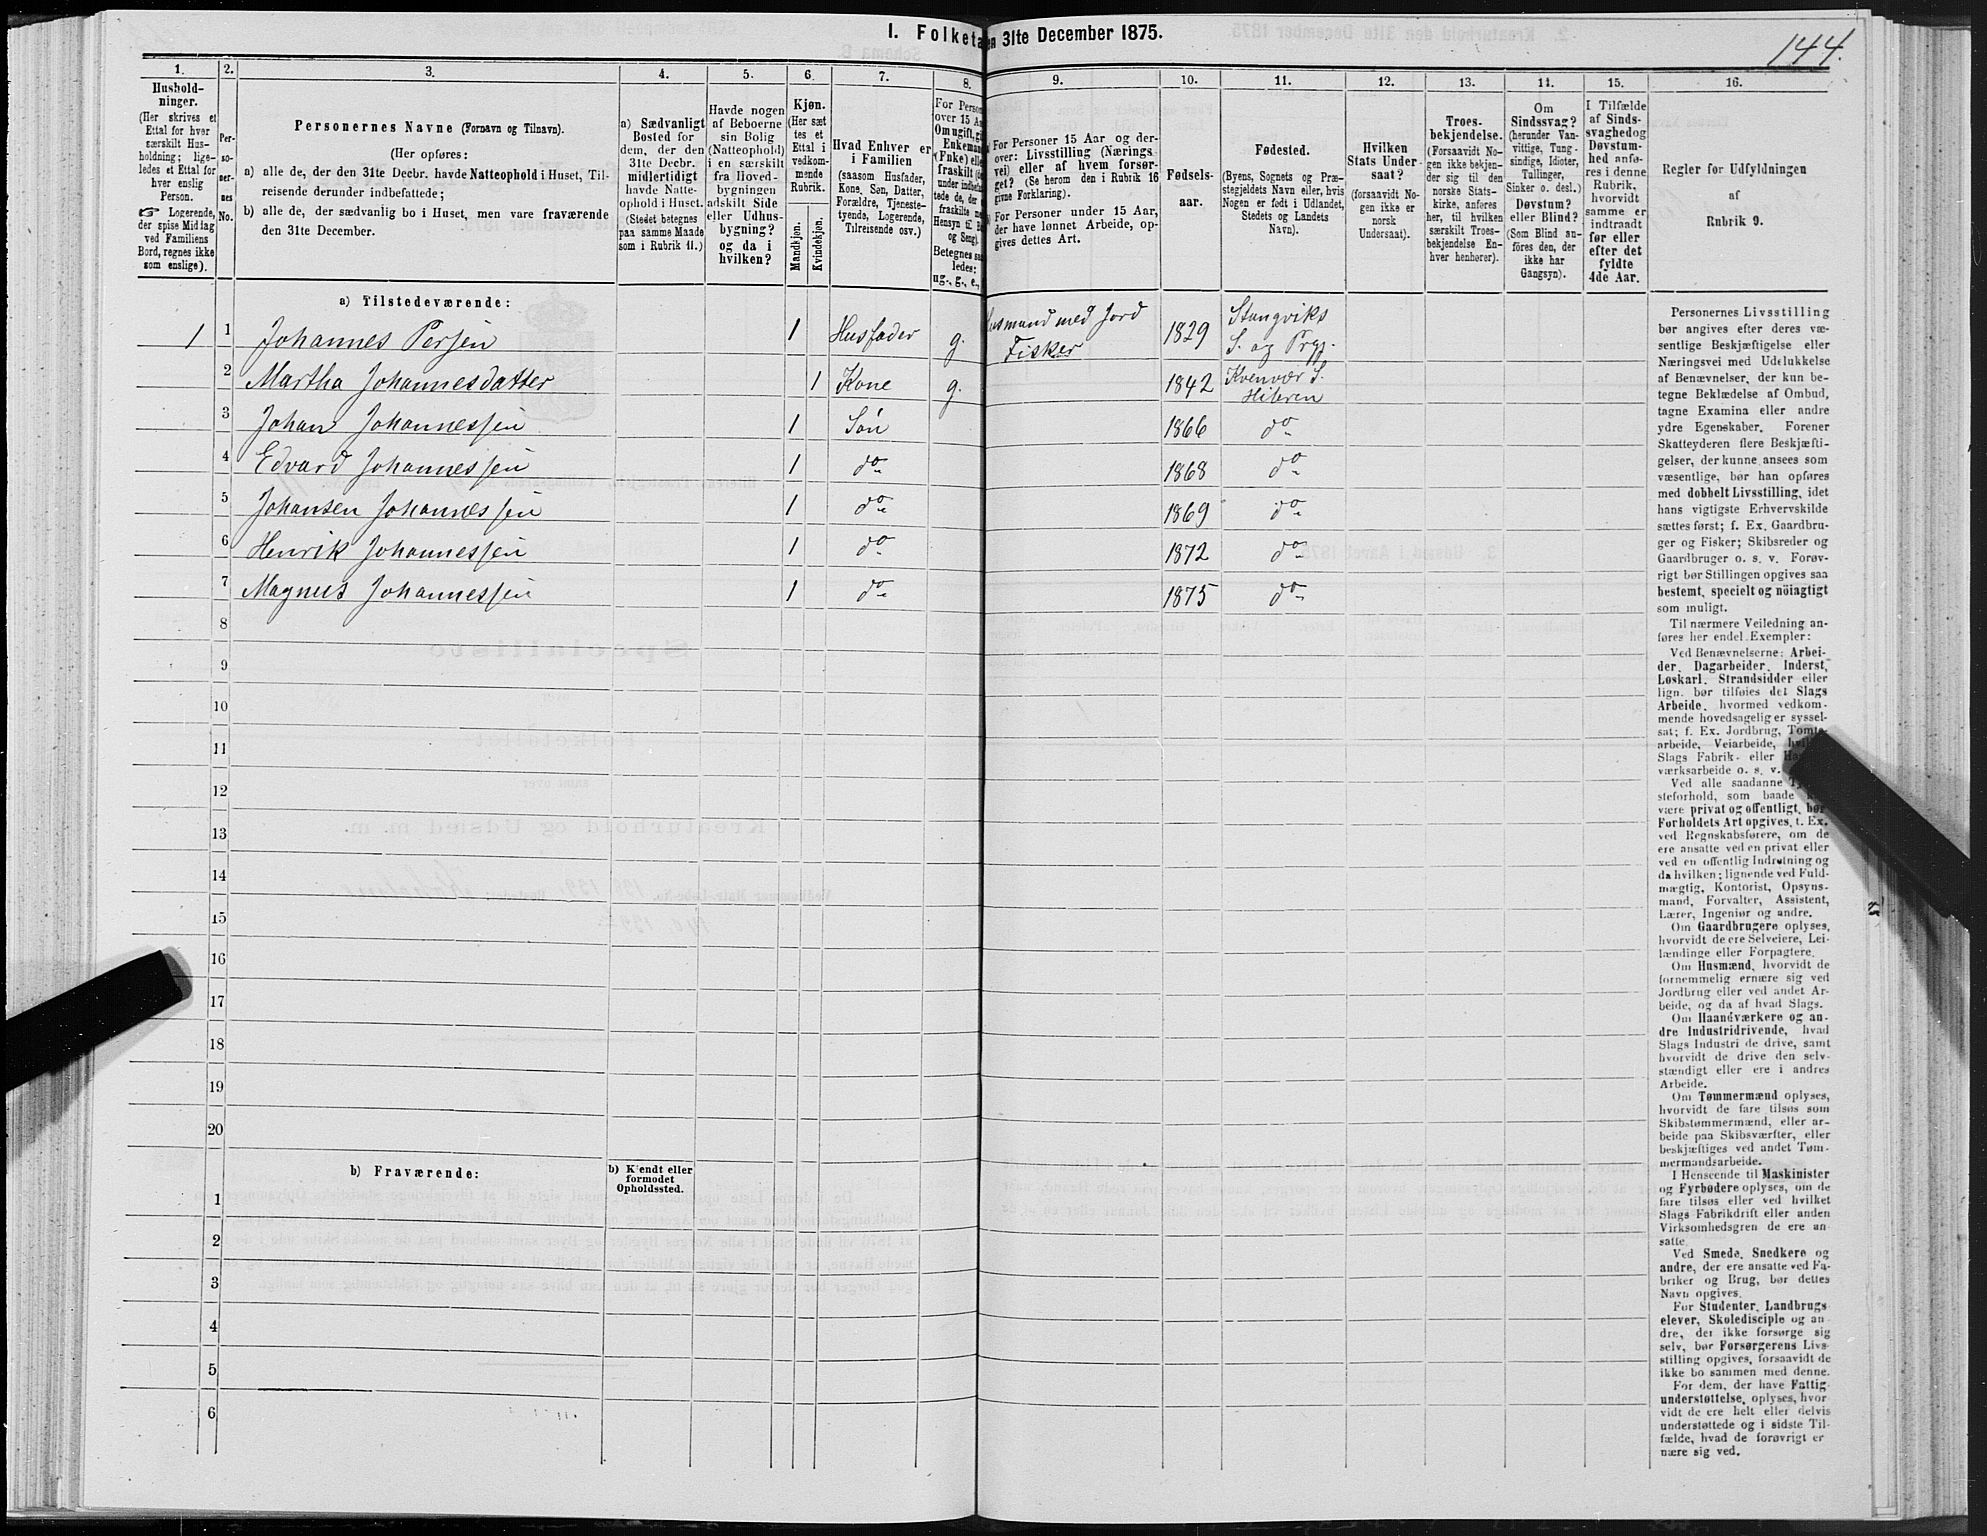 I. Folketa en 31te December 1875.
144.
1.
Hushold-
ninger.
(Her skrives et
Ettal for hver
særskilt Hus-
holdning; lige-
ledes et Ettal for
hver enslig
Person.
☞ Logerende,
der spise Middag
ved Familiens
Bord, regnes ikke
som enslige).
2.
Per-
so-
ner-
nes
No.
3.
Personernes Navne (Fornavn og Tilnavn).
(Her opføres:
a) alle de, der den 31te Decbr. havde Natteophold i Huset, Til-
reisende derunder indbefattede;
b) alle de, der sædvanlig bo i Huset, men vare fraværende
den 31te December.
4.
a) Sædvanligt
Bosted for
dem, der den
31te Decbr.
midlertidigt
havde Natte-
ophold i Huset.
(Stedet betegnes
paa samme Maade
som i Rubrik 11.)
5.
Havde nogen
af Beboerne
sin Bolig
(Natteophold)
i en særskilt
fra Hoved-
bygningen
adskilt Side
eller Udhus-
bygning?
og da i
hvilken?
6.
Kjøn.
(Her sæt
tes et
Ettal i
vedkom-
mende
Rubrik.
Mandkjøn.
Kvindekjøn.
7.
Hvad Enhver er
i Familien
(saasom Husfader,
Kone, Søn, Datter,
Forældre, Tjeneste-
tyende, Logerende,
Tilreisende osv.)
8.
For Person
over 15 Aa
Om ugift, gi
Enkeman
(Enke) elle
fraskilt (d
under indbe
tede de, der
fraskilte me
Hensyn til Bo
og Seng).
Betegnes saa
ledes:
ug., g., e.,
9.
For Personer 15 Aar og der-
over: Livsstilling (Nærings
vei) eller af hvem forsør-
get? (Se herom den i Rubrik 16
givne Forklaring).
For Personer under 15 Aar,
der have lønnet Arbeide, op-
gives dettes Art.
10.
Fødsels-
aar.
11.
Fødested.
(Byens, Sognets og Præ-
stegjeldets Navn eller, hvis
Nogen er født i Udlandet,
Stedets og Landets
Navn).
12.
Hvilken
Stats Under-
saat?
(forsaavidt No-
gen ikke er
norsk
Undersaat).
13.
Troes-
bekjendelse.
(Forsaavidt No-
gen ikke bekjen-
der sig til den
norske Stats-
kirke, anføres
her, til hvilken
særskilt Troes-
bekjendelse En-
hver henhører).
14.
Om
Sindssvag?
(herunder Van-
vittige, Tung-
sindige, Idioter,
Tullinger,
Sinker o. desl.)
Døvstum?
eller Blind?
(Som Blind an-
føres den, der
ikke har
Gangsyn).
15.
I Tilfælde
af Sinds-
svaghed og
Døvstum-
hed anfø-
res i denne
Rubrik,
hvorvidt
samme er
indtraadt
før eller
efter det
fyldte
4de Aar.
16.
Regler for Udfyldningen
af
Rubrik 9.
a) Tilstedeværende:
1 1 Johannes Persen 1 Husfader g. Husmand med Jord Fisker 1829 Stangviks S. og Prgj.
2 Martha Johannesdatter 1 Kone g. 1842 Kvenvær S. Hiteren
3 Johan Johannessen 1 Søn 1866 do
4 Edvard Johannessen 1 do 1868 do
5 Johansen Johannessen 1 do 1869 do
6 Henrik Johannessen 1 do 1872 do
7 Magnus Johannessen 1 do 1875 do
8
9
10
11
12
13
14
15
16
17
18
19
20
b) Fraværende:
b) Kjendt eller
formodet
Opholdssted.
1
2
3
4
5
6
Personernes Livsstilling
bør angives efter deres væ-
sentlige Beskjæftigelse eller
Næringsvei med Udelukkelse
af Benævnelser, der kun be-
tegne Beklædelse af Ombud,
tagne Examina eller andre
ydre Egenskaber. Forener
Skatteyderen flere Beskjæfti-
gelser, der kunne ansees som
væsentlige, bør han opføres
med dobbelt Livsstilling, idet
hans vigtigste Erhvervskilde
sættes først; f. Ex. Gaardbru-
ger og Fisker; Skibsreder og
Gaardbruger o. s. v. Forøv-
rigt bør Stillingen opgives saa
bestemt, specielt og nöiagtigt
som muligt.
Til nærmere Veiledning an-
føres her endel Exempler:
Ved Benævnelserne: Arbei-
der, Dagarbeider, Inderst,
Løskarl, Strandsidder eller
lign. bør tilføies det Slags
Arbeide, hvormed vedkom-
mende hovedsagelig er syssel-
sat; f. Ex. Jordbrug, Tomte-
arbeide, Veiarbeide,
Slags Fabrik- eller
værksarbeide o. s. v.
Ved alle saadanne
steforhold, som baade
være privat og offentligt, bør
Forholdets Art opgives, f. Ex.
ved Regnskabsførere, om de
ere ansatte ved en privat eller
ved en offentlig Indretning og
da hvilken; lignende ved Fuld-
mægtig, Kontorist, Opsyns-
mand, Forvalter, Assistent,
Lærer, Ingeniør og andre.
Om Gaardbrugere oplyses,
hvorvidt de ere Selveiere, Lei-
lændinge eller Forpagtere.
Om Husmænd, hvorvidt de
fornemmelig ernære sig ved
Jordbrug eller ved andet Ar-
beide, og da af hvad Slags.
Om Haandværkere og an-
dre Industridrivende, hvad
Slags Industri de drive, samt
hvorvidt de drive den selv-
stændigt eller ere i andres
Arbeide.
Om Tømmermænd oplyses,
hvorvidt de fare tilsøs som
Skibstømmermænd, eller ar-
beide paa Skibsværfter, eller
beskjæftiges ved andet Tøm-
mermandsarbeide.
I Henseende til Maskinister
og Fyrbødere oplyses, om de
fare tilsøs eller ved hvilket
Slags Fabrikdrift eller anden
Virksomhedsgren de ere an-
satte.
Ved Smede, Snedkere og
andre, der ere ansatte ved Fa-
briker og Brug, bør dettes
Navn opgives.
For Studenter, Landbrugs-
elever, Skoledisciple og an-
dre, der ikke forsørge sig
selv, bør Forsørgerens Livs-
stilling opgives, forsaavidt de
ikke bo sammen med denne.
For dem, der have Fattig-
understøttelse, oplyses, hvor-
vidt de ere helt eller delvis
understøttede og i sidste Til-
fælde, hvad de forøvrigt er
nære sig ved.